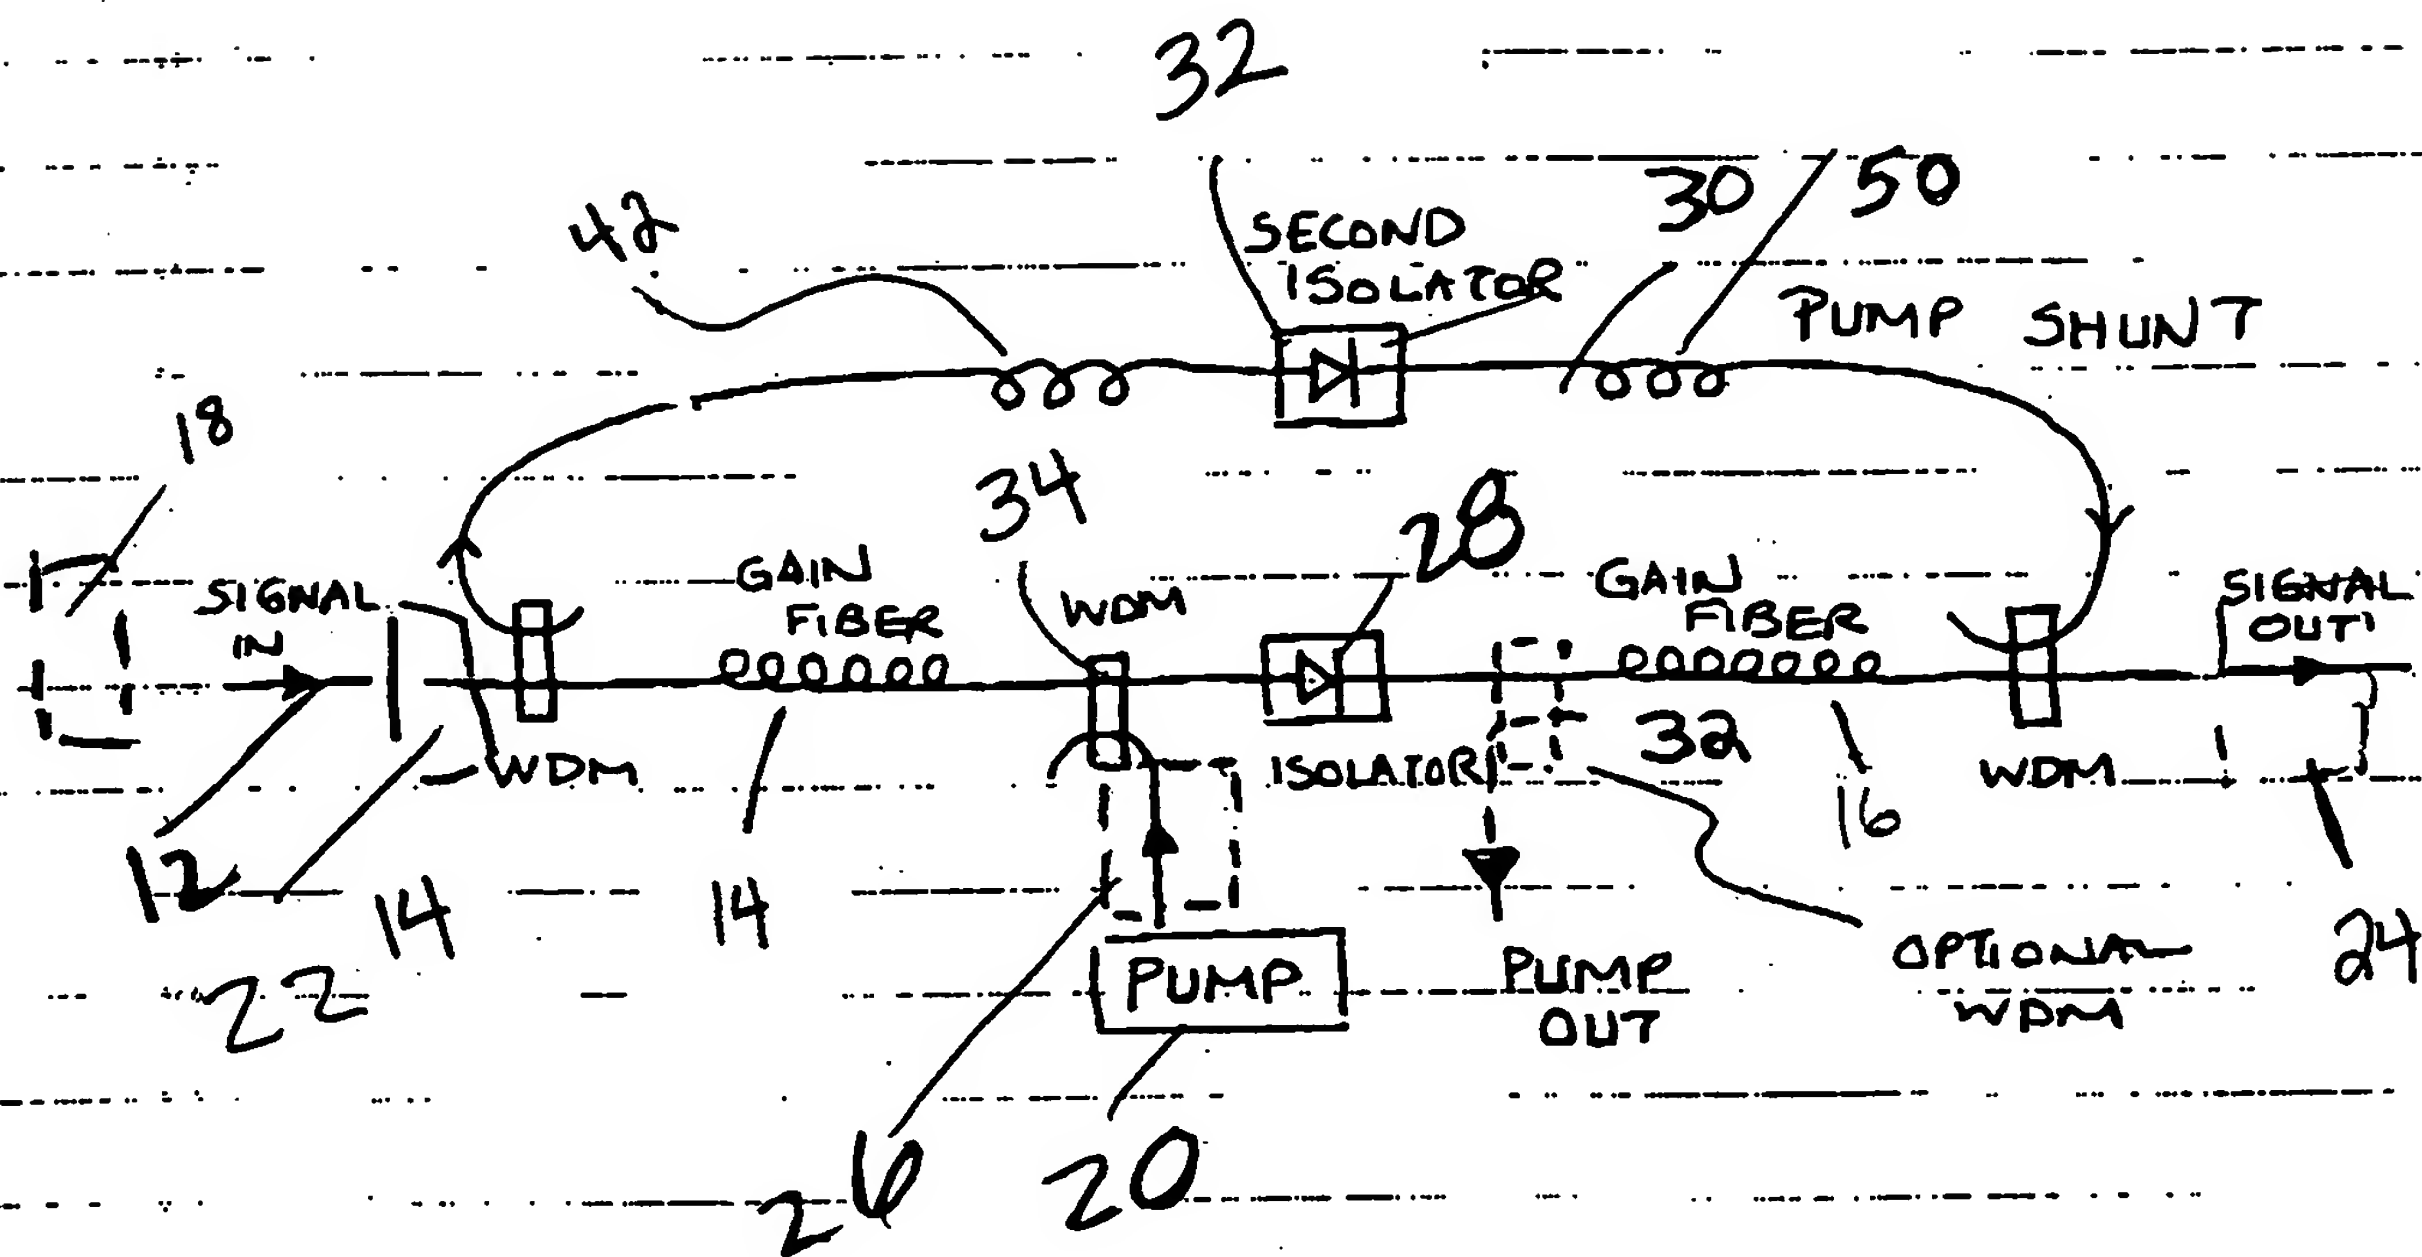 32
42
30
50
SECOND
ISOLATOR
PUMP SHUNT
18
34
28
SIGNAL
IN
GAIN
FIBER
WDM
GAIN
FIBER
SIGNAL
OUT
WDM
ISOLATOR
32
WDM
16
12
14
14
22
PUMP
PUMP
OUT
OPTIONAL
WDM
24
26
20